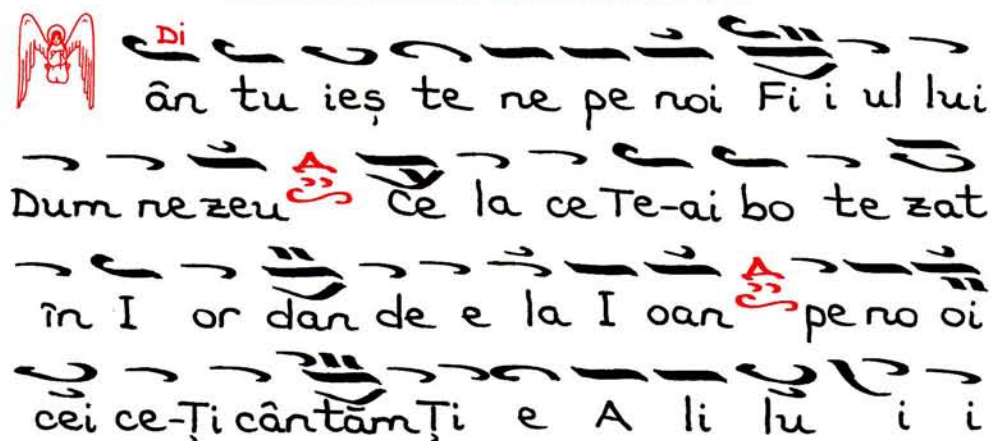 Di
ân tu ieș te ne pe noi Fi i ul lui
Dum ne zeu A Ce la ce Te-ai bo te zat
în I or dan de e la I oan A pe no oi
cei ce-Ți cântăm Ți e A li lu i i